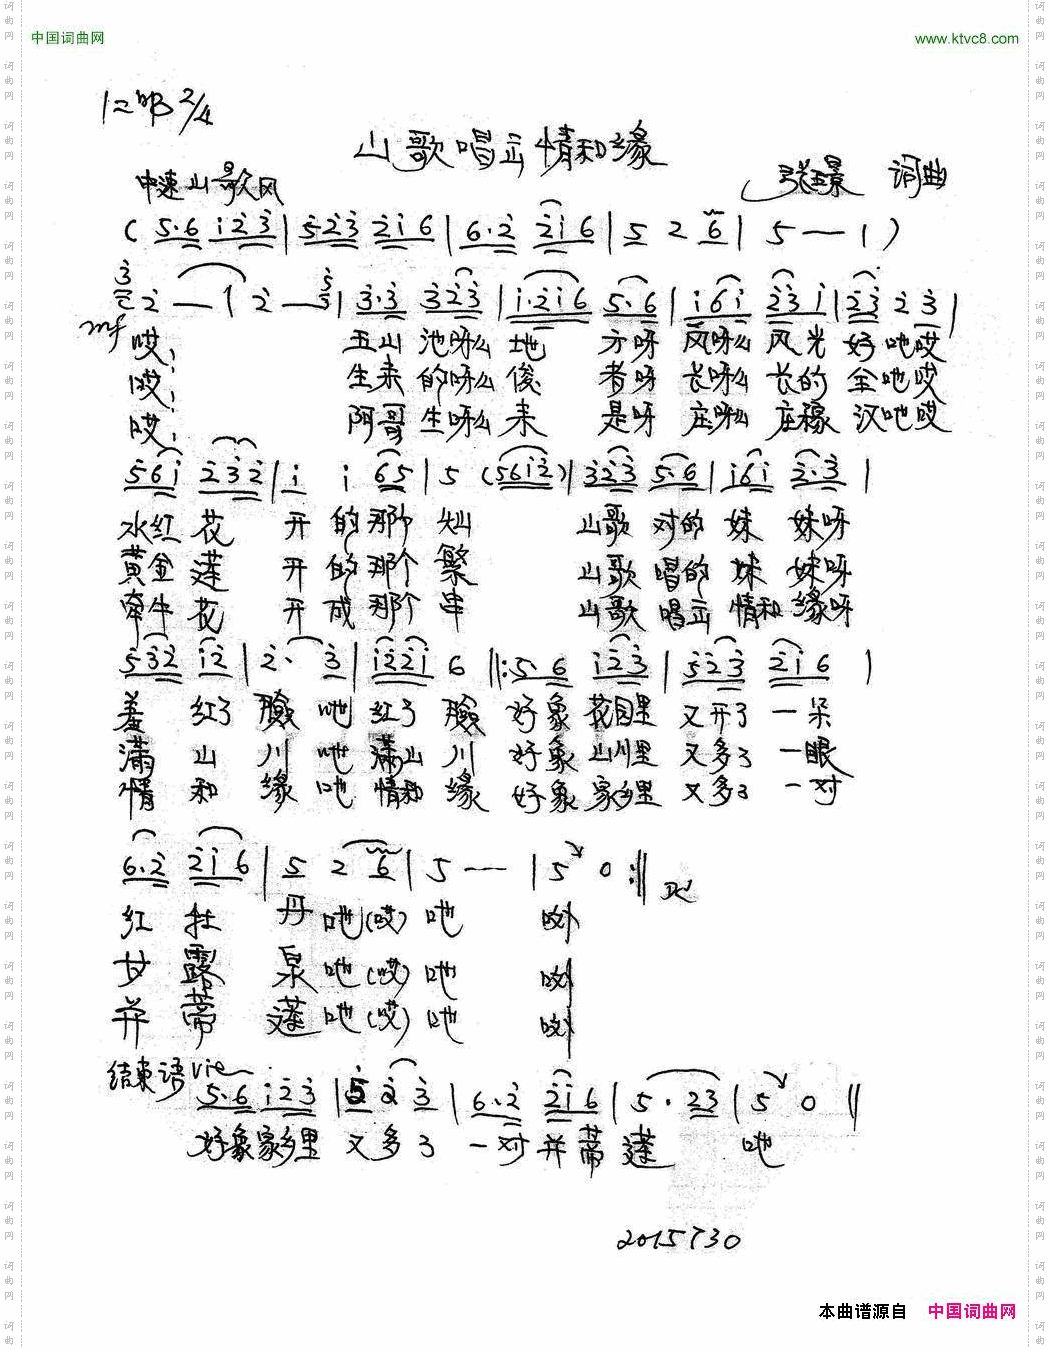 中国词曲网
www.ktvc8.com
1=♭B 2/4
山歌唱立情和缘
中速山歌风
词曲
(5·6 i23|523 2i6|6·2 2i6|5 2 6|5—1)
2—1 2—|3·3 323|i·2i6 5·6|i6i 23i|23 2 3|
mf
哎, 五山 池呀么 地 方呀 风呀么 风光 好吔哎
哎, 生来 的呀么 俊 者呀 长呀么 长的 全吔哎
哎, 阿哥 生呀么 来 是呀 庄呀么 庄稼 汉吔哎
56i 232|i i 65|5 (56i2)|323 5·6|i6i 2·3|
水红 花 开 的 那个 灿 山歌 对的 妹 妹呀
黄金 莲 开 的 那个 繁 山歌 唱的 妹 妹呀
牵牛 花 开 成 那个 串 山歌 唱立 情和 缘呀
532 i2|2· 3|i22i 6‖:5·6 i23|523 2i6|
羞 红了 脸 吔 红了 脸 好象 花园里 又开了 一朵
满 山 川 吔 满山 川 好象 山川里 又多了 一眼
情 和 缘 吔 情和 缘 好象 家乡里 又多了 一对
6·2 2i6|5 2 6|5—|5 0:‖
红 牡 丹 吔(哎) 吔
甘 露 泉 吔(哎) 吔
并 蒂 莲 吔(哎) 吔
结束语
5·6 i23|5 2 3|6·2 2i6|5·23|5 0‖
好象家乡里 又 多 了 一对 并 蒂 莲 吔
2015730
本曲谱源自 中国词曲网